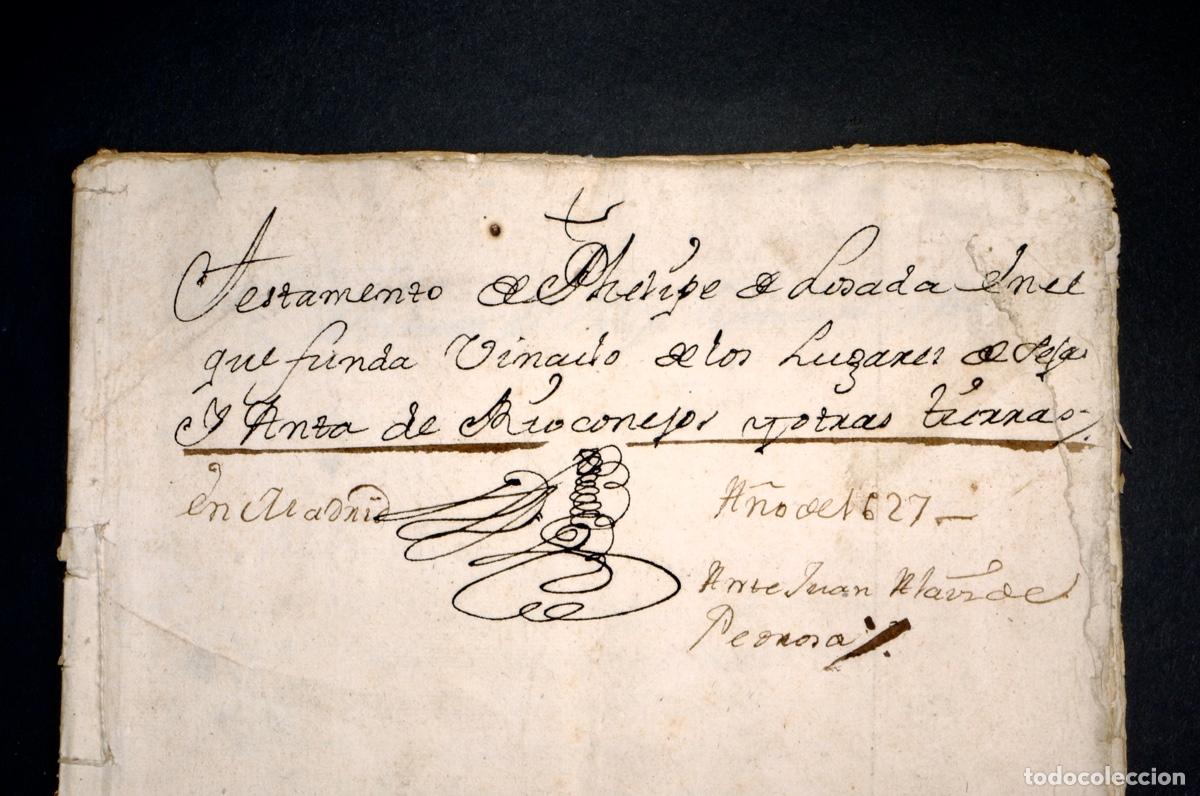 Testamento de Phelipe de Losada En el
que funda Vinculo de los Lugares de
Y Anta de Rioconejos y otras tierras
En Madrid Año de 1627
Ante Juan de
Pedrosa
todocoleccion